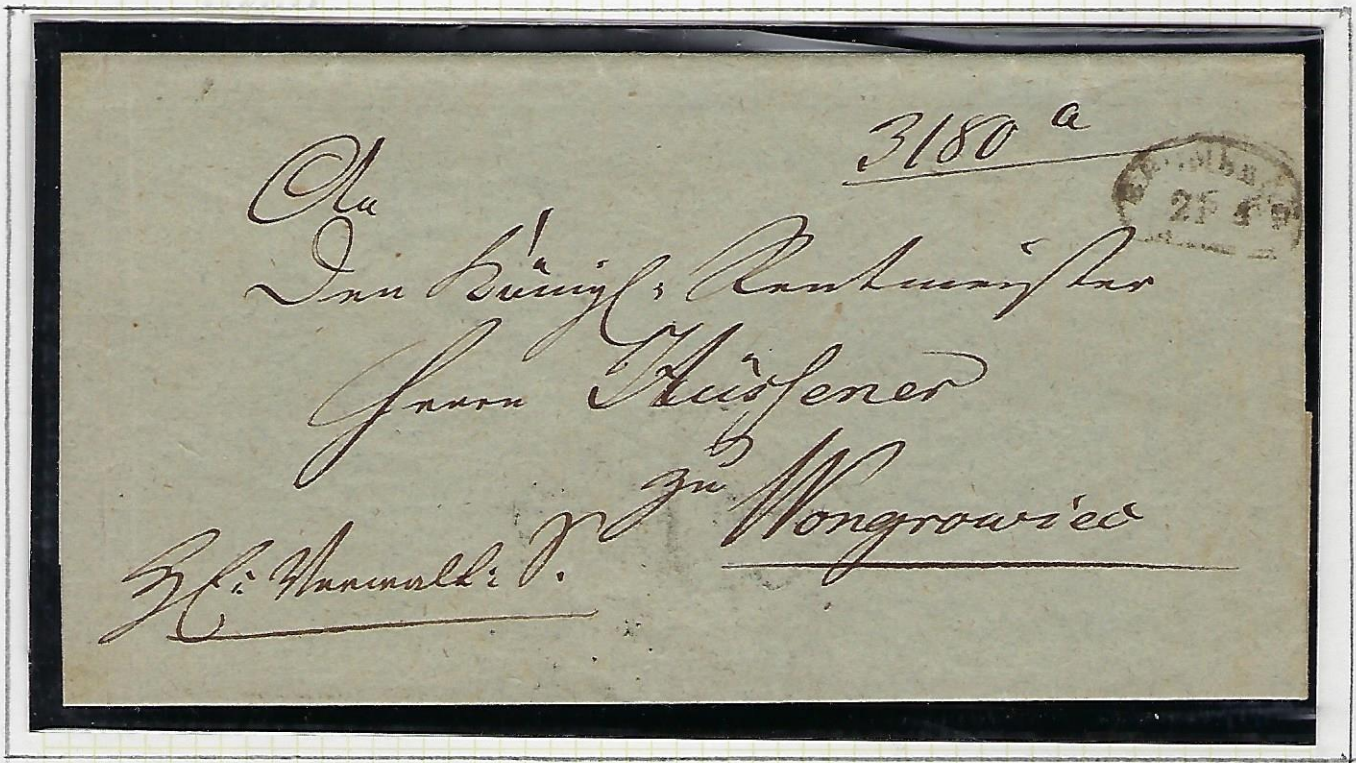 3180 a
An
Den Königl: Rentmeister
Herrn
zu Wongrowiec
Verwalt: S.